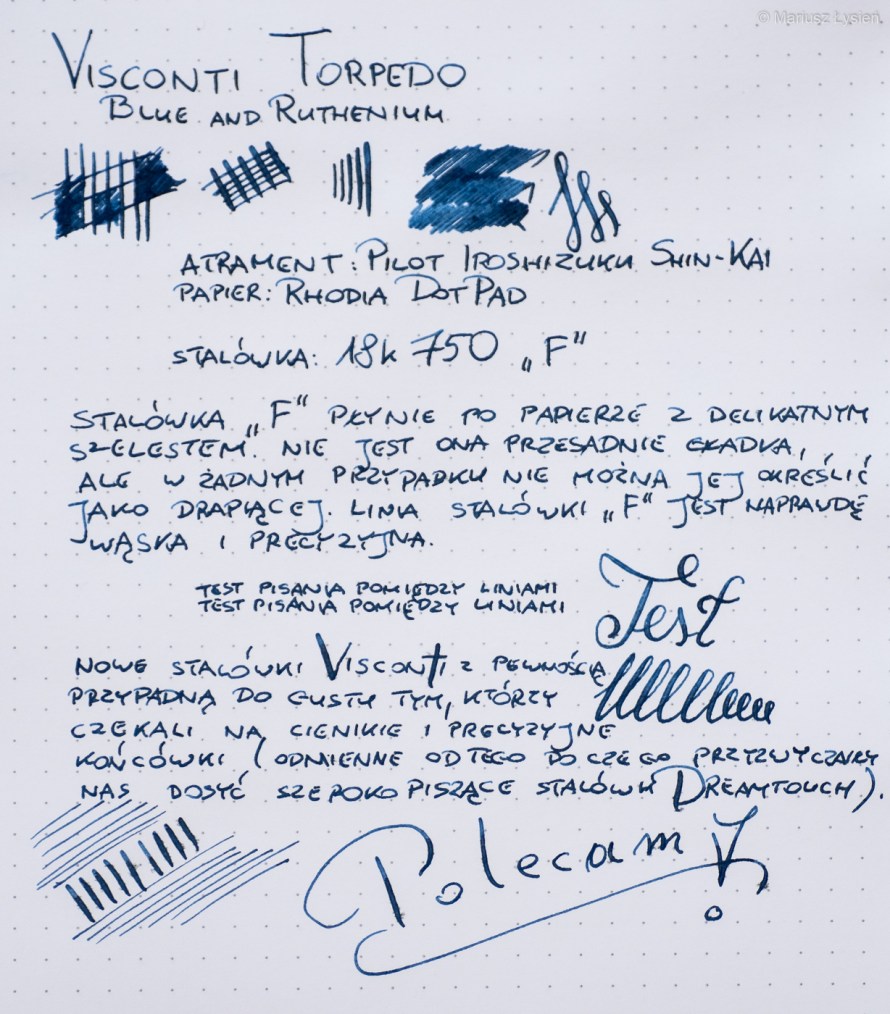 © Mariusz Lysień
VISCONTI TORPEDO
BLUE AND RUTHENIUM
ATRAMENT: PILOT IROSHIZUKU SHIN-KAI
PAPIER: RHODIA DOTPAD
STALÓWKA: 18k 750 „F"
STALÓWKA „F" PŁYNIE PO PAPIERZE Z DELIKATNYM
SZELESTEM. NIE JEST ONA PRZESADNIE GŁADKA,
ALE W ŻADNYM PRZYPADKU NIE MOŻNA JEJ OKREŚLIĆ
JAKO DRAPIĄCEJ. LINIA STALÓWKI „F" JEST NAPRAWDĘ
WĄSKA I PRECYZYJNA.
TEST PISANIA POMIĘDZY LINIAMI
TEST PISANIA POMIĘDZY LINIAMI
Test
NOWE STALÓWKI VISCONTI Z PEWNOŚCIĄ
PRZYPADNĄ DO GUSTU TYM, KTÓRZY
CZEKALI NA CIENIKIE I PRECYZYJNE
KOŃCÓWKI (ODMIENNE OD TEGO DO CZEGO PRZYZWYCZAIŁY
NAS DOSYĆ SZEROKO PISZĄCE STALÓWKI DREAMTOUCH).
Polecam!